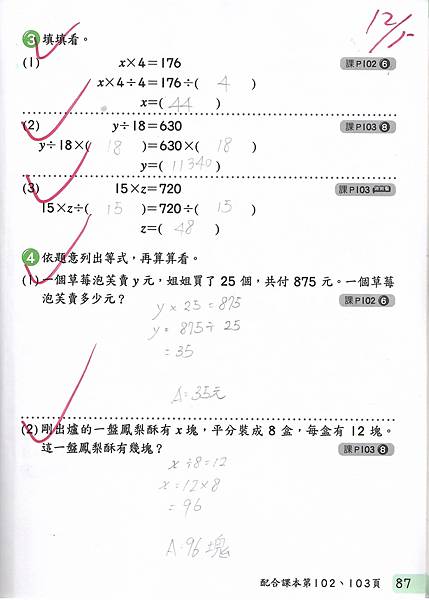 12/15
3 填填看。
(1) x×4=176 課P102 6
x×4÷4=176÷( 4 )
x=( 44 )
(2) y÷18=630 課P103 8
y÷18×( 18 )=630×( 18 )
y=( 11340 )
(3) 15×z=720 課P103
15×z÷( 15 )=720÷( 15 )
z=( 48 )
4 依題意列出等式,再算算看。
(1) 一個草莓泡芙賣y元,姐姐買了25個,共付875元。一個草莓
泡芙賣多少元? 課P102 6
y×25=875
y=875÷25
=35
A:35元
(2) 剛出爐的一盤鳳梨酥有x塊,平分裝成8盒,每盒有12塊。
這一盤鳳梨酥有幾塊? 課P103 8
x÷8=12
x=12×8
=96
A:96塊
配合課本第102、103頁 87